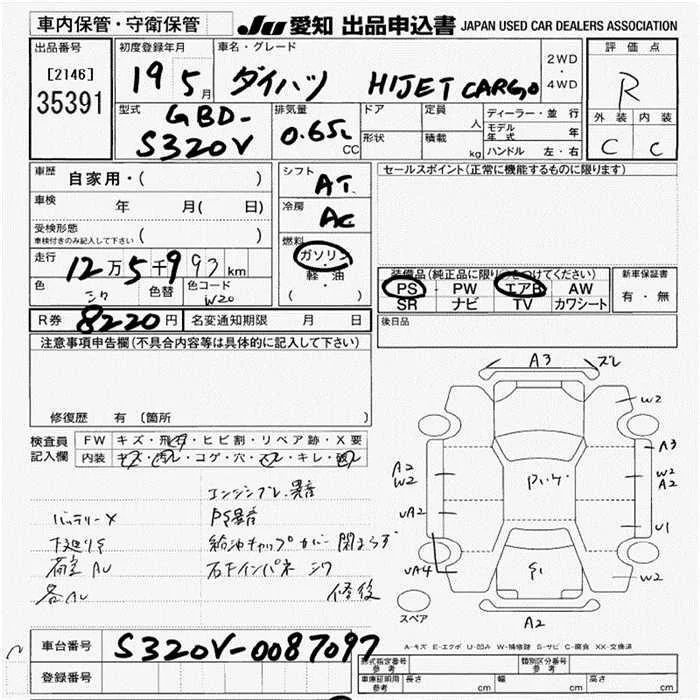 車内保管・守衛保管
JU 愛知 出品申込書 JAPAN USED CAR DEALERS ASSOCIATION
出品番号
[2146]
35391
初度登録年月
19年 5月
車名・グレード
ダイハツ HIJET CARGO
2WD
・
4WD
評価点
R
外装 内装
C C
型式
GBD-
S320V
排気量
0.65L
CC
ドア
形状
定員
人
積載
kg
ディーラー・並行
モデル年式 年
ハンドル 左・右
車歴
自家用・( )
車検 年 月( 日)
受検形態
車検付きのみ記入して下さい ( )
走行
12万5千993km
色 シワ 色替 色コード W20
シフト
AT
冷房
AC
燃料
ガソリン
軽・油
( )
セールスポイント(正常に機能するものに限ります)
装備品(純正品に限り○をつけてください)
PS・PW エアB AW
SR ナビ TV カワシート
新車保証書
有・無
後日品
R券 8220円 名変通知期限 月 日
注意事項申告欄(不具合内容等は具体的に記入して下さい)
修復歴 有 〔箇所 〕
検査員
記入欄
FW キズ・飛石・ヒビ割・リペア跡・X要
内装 キズ・汚レ・コゲ・穴・スレ・キレ・破レ
エンジンブレ、異音
バッテリーX PS異音
下廻りS 給油キャップカバー閉まらず
荷室AU 右下インパネ シワ
各AU 修後
A3 ズレ
W2
A3
A2
W2
W2
A2
UA2
U1
UA4
W2
A2
スペア
A-キズ E-エクボ U-凹み W-補修跡 S-サビ C-腐食 XX-交換済
車台番号 S320V-0087097
登録番号
型式指定番号
参考
類別区分番号
参考
車庫証明用
参考
長さ cm 幅 cm 高さ cm